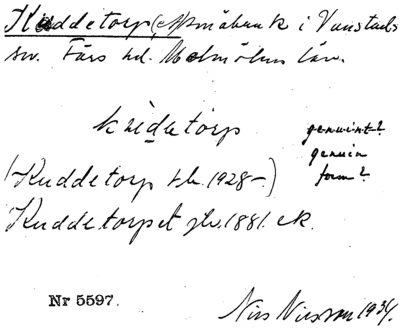 Kuddetorp(et) småbruk i Vanstads
sn. Färs hd. Malmöhus län.
genuint?
genuin
form?
(Kuddetorp tk. 1928-)
Kuddetorpet jb. 1881. ek.
Nr 5597.
Nils Nilsson 1934.